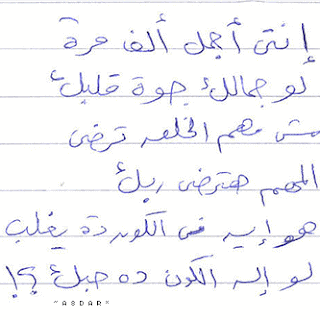 إنتى أجمل ألف مرة
لو جمالك جوة قلبك
مش مهم الخلق ترضى
المهم هترضى ربك
هو إيه فى الكون ده يغلب
لو إله الكون ده حبك ؟!
~ASDAR~